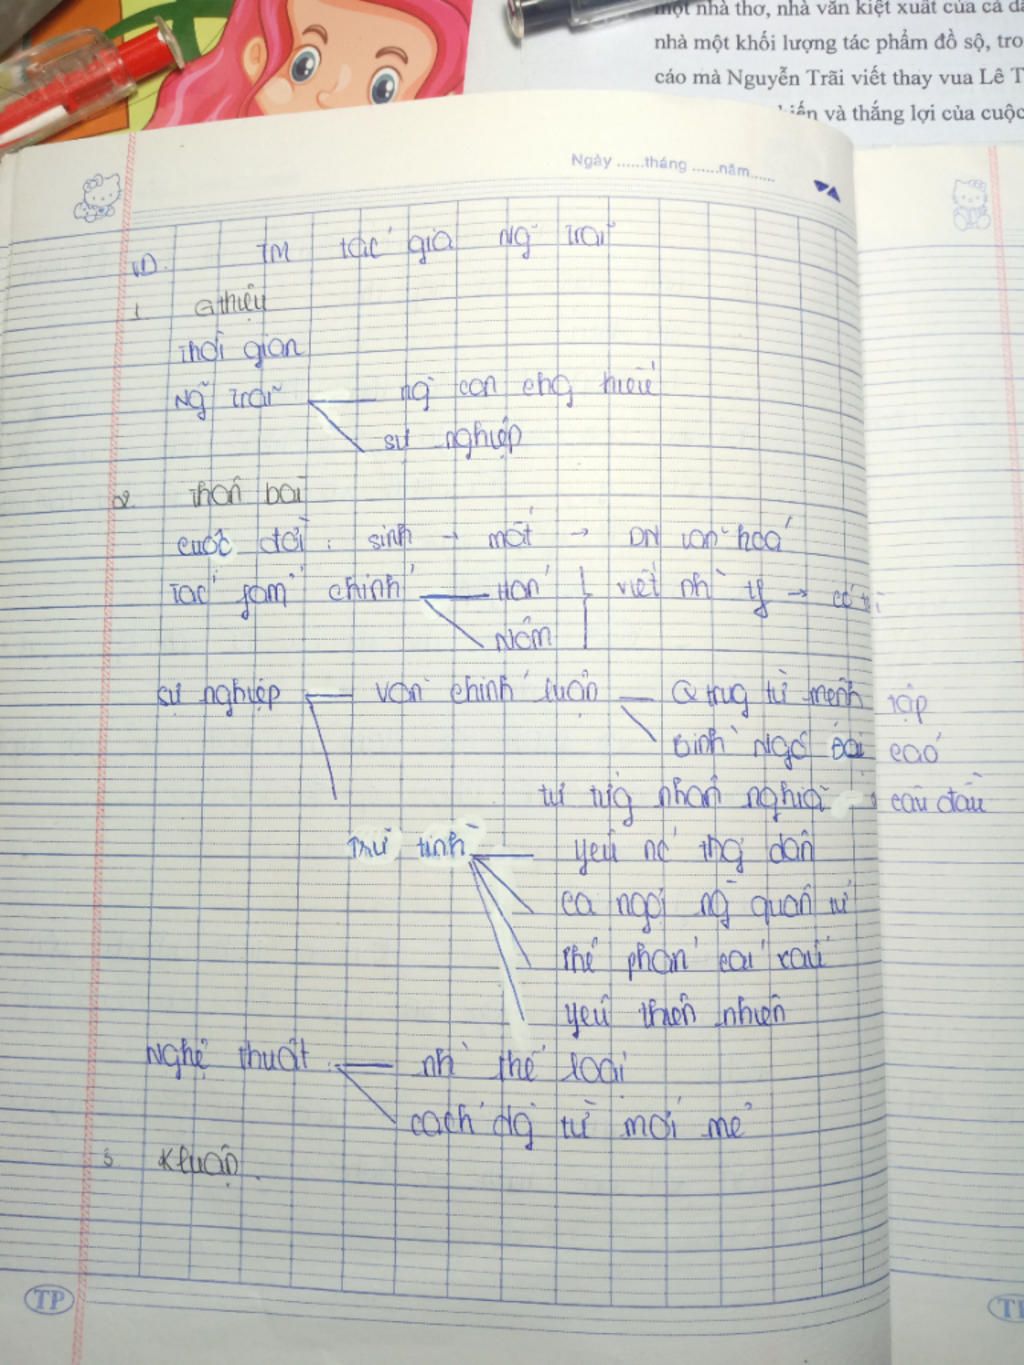 một nhà thơ, nhà văn kiệt xuất của cả
nhà một khối lượng tác phẩm đồ sộ, tro
cáo mà Nguyễn Trãi viết thay vua Lê T
và thắng lợi của cuộc
Ngày ......tháng ......năm......
TM tác giả Ng̃ Trãi
1 Gthiệu
Thời gian
Ng̃ Trãi — ng con ang hiếu
sự nghiệp
2. Thân bài
cuộc đời : sinh → mất → DN văn hoá
Tác fẩm chính — Hán viết nh` →
Nôm
sự nghiệp — văn chính luận — Q trug từ mệnh tập
Bình Ngô Đại cáo
tư tưg nhân nghĩa câu đầu
Trữ tình — yêu nc thg dân
ca ngợi ng̃ quân tử
phê phán cái xấu
yêu thiên nhiên
Nghệ thuật — nh` thể loại
cách dg từ mới mẻ
3 Kluận
TP